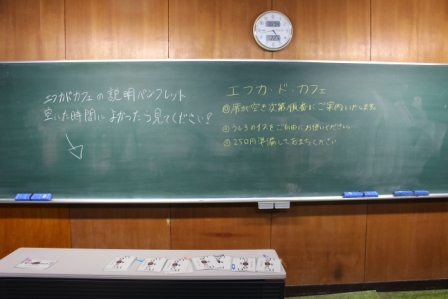 エフカドカフェの説明パンフレット
空いた時間によかったら見てください!
エフカ・ド・カフェ
◎席が空き次第順番にご案内いたします。
◎うしろのイスをご自由にお使いください
◎250円準備しておまちください